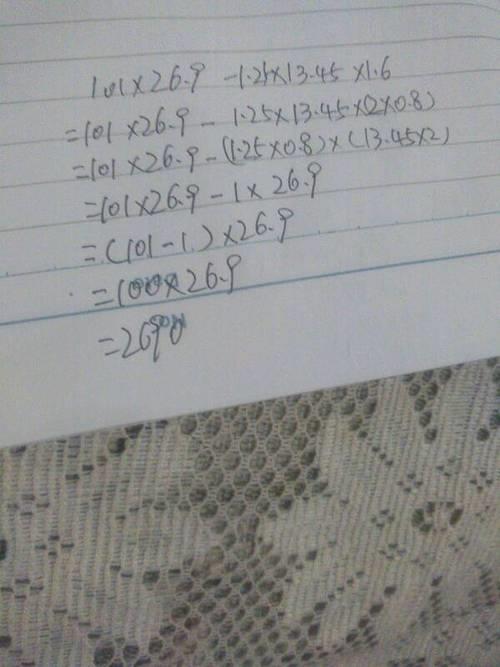 101×26.9 -1.25×13.45×1.6
=101×26.9 - 1.25×13.45×(2×0.8)
=101×26.9-(1.25×0.8)×(13.45×2)
=101×26.9-1×26.9
=(101-1)×26.9
=100×26.9
=2690